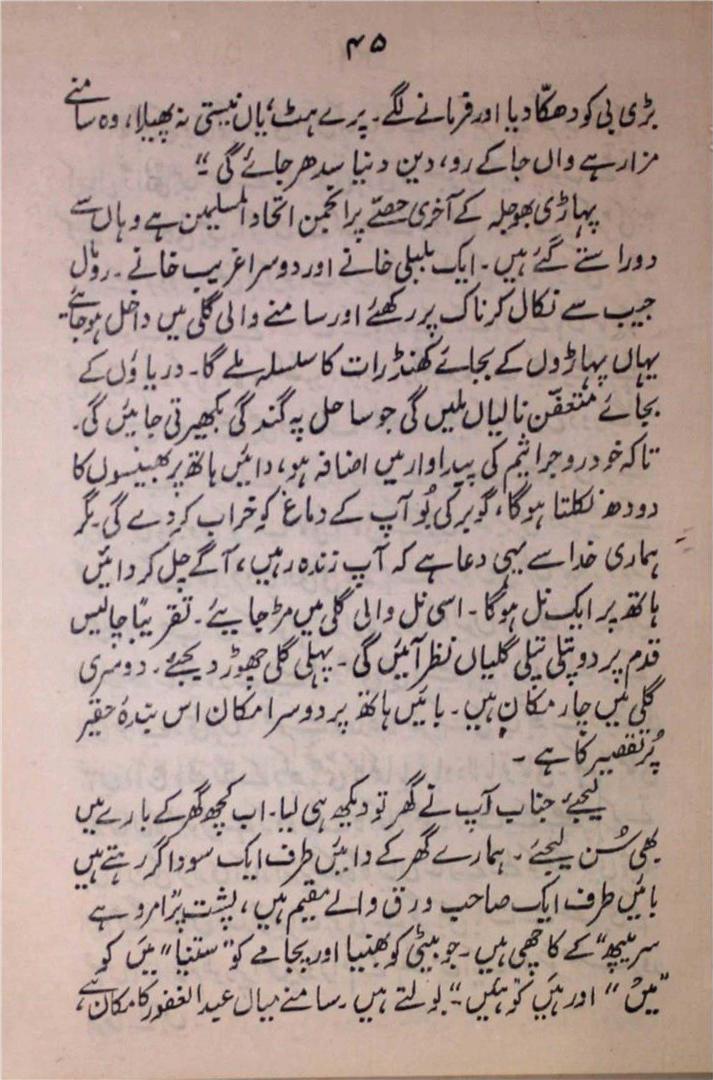 ۴۵
بڑی بی کو دھکّا دیا اور فرمانے لگے۔ پرے ہٹ، یاں نیستی نہ پھیلا، وہ سامنے
مزار ہے واں جاکے رو، دین دنیا سدھر جائے گی “
پہاڑی بھوجلہ کے آخری حصّے پر انجمن اتحاد المسلمین ہے وہاں سے
دو راستے گئے ہیں۔ ایک بلبلی خانے اور دوسرا غریب خانے۔ رومال
جیب سے نکال کر ناک پر رکھئے اور سامنے والی گلی میں داخل ہوجائیے۔
یہاں پہاڑوں کے بجائے کھنڈرات کا سلسلہ ملے گا۔ دریاؤں کے
بجائے متعفّن نالیاں ملیں گی جو ساحل پہ گندگی بکھیرتی جائیں گی۔
تاکہ خودرو جراثیم کی پیداوار میں اضافہ ہو، دائیں ہاتھ پر بھینسوں کا
دودھ نکلتا ہوگا، گوبر کی بُو آپ کے دماغ کو خراب کردے گی۔ مگر
ہماری خدا سے یہی دعا ہے کہ آپ زندہ رہیں، آگے چل کر دائیں
ہاتھ پر ایک نل ہوگا۔ اسی نل والی گلی میں مڑجایئے۔ تقریباً چالیس
قدم پر دو پتلی پتلی گلیاں نظر آئیں گی۔ پہلی گلی چھوڑ دیجئے۔ دوسری
گلی میں چار مکان ہیں۔ بائیں ہاتھ پر دوسرا مکان اس بندۂ حقیر
پُرتقصیر کا ہے۔
لیجئے جناب آپ نے گھر تو دیکھ ہی لیا۔ اب کچھ گھر کے بارے میں
بھی سُن لیجئے۔ ہمارے گھر کے دائیں طرف ایک سوداگر رہتے ہیں
بائیں طرف ایک صاحب ورق والے مقیم ہیں، پشت پر امروہے
کے کاچھی ہیں۔ جو بیٹی کو بھنیا اور پجامے کو ”ستنیا“ میں کو
”میں“ اور ہیں کو ہئیں“ بولتے ہیں۔ سامنے میاں عبدالغفور کا مکان ہے،